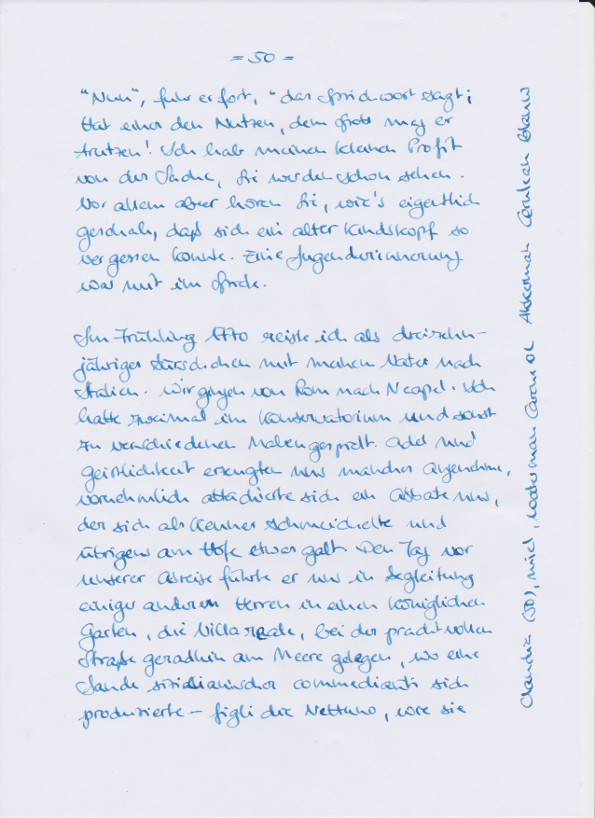 = 50 =
"Nun", fuhr er fort, "das Sprichwort sagt;
Hat einer den Nutzen, dem Spott mag er
trutzen! Ich hab meinen kleinen Profit
von der Sache, Sie werden schon sehen.
Vor allem aber hören Sie, wie's eigentlich
geschah, daß sich ein alter Kindskopf so
vergessen konnte. Eine Jugenderinnerung
war mit im Spiele.
Im Frühling 1770 reiste ich als dreizehn-
jähriger Bürschchen mit meinem Vater nach
Italien. Wir gingen von Rom nach Neapel. Ich
hatte zweimal im Konservatorium und sonst
zu verschiedenen Malen gespielt. Adel und
Geistlichkeit erzeugten uns manches Angenehme,
vornehmlich attachierte sich ein Abbate uns,
der sich als Kenner schmeichelte und
übrigens am Hofe etwas galt. Den Tag vor
unserer Abreise führte er uns in Begleitung
einiger anderen Herren in einen königlichen
Garten, die Villa reale, bei der prachtvollen
Straße geradhin am Meere gelegen, wo eine
Bande sizilianischer commedianti sich
produzierte – figli di Nettuno, wie sie
Claudia (30), mirel, Waterman Caran